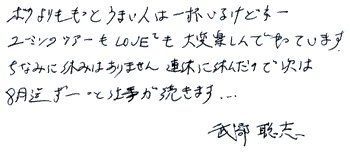 ボクよりももっとうまい人は一杯いるけどネー
ユーミンツアーもLOVE²も大変楽しんでやっています
ちなみに休みはありません 連休に休んだけで次は
8月迄ずーっと仕事が続きます…
武部聡志